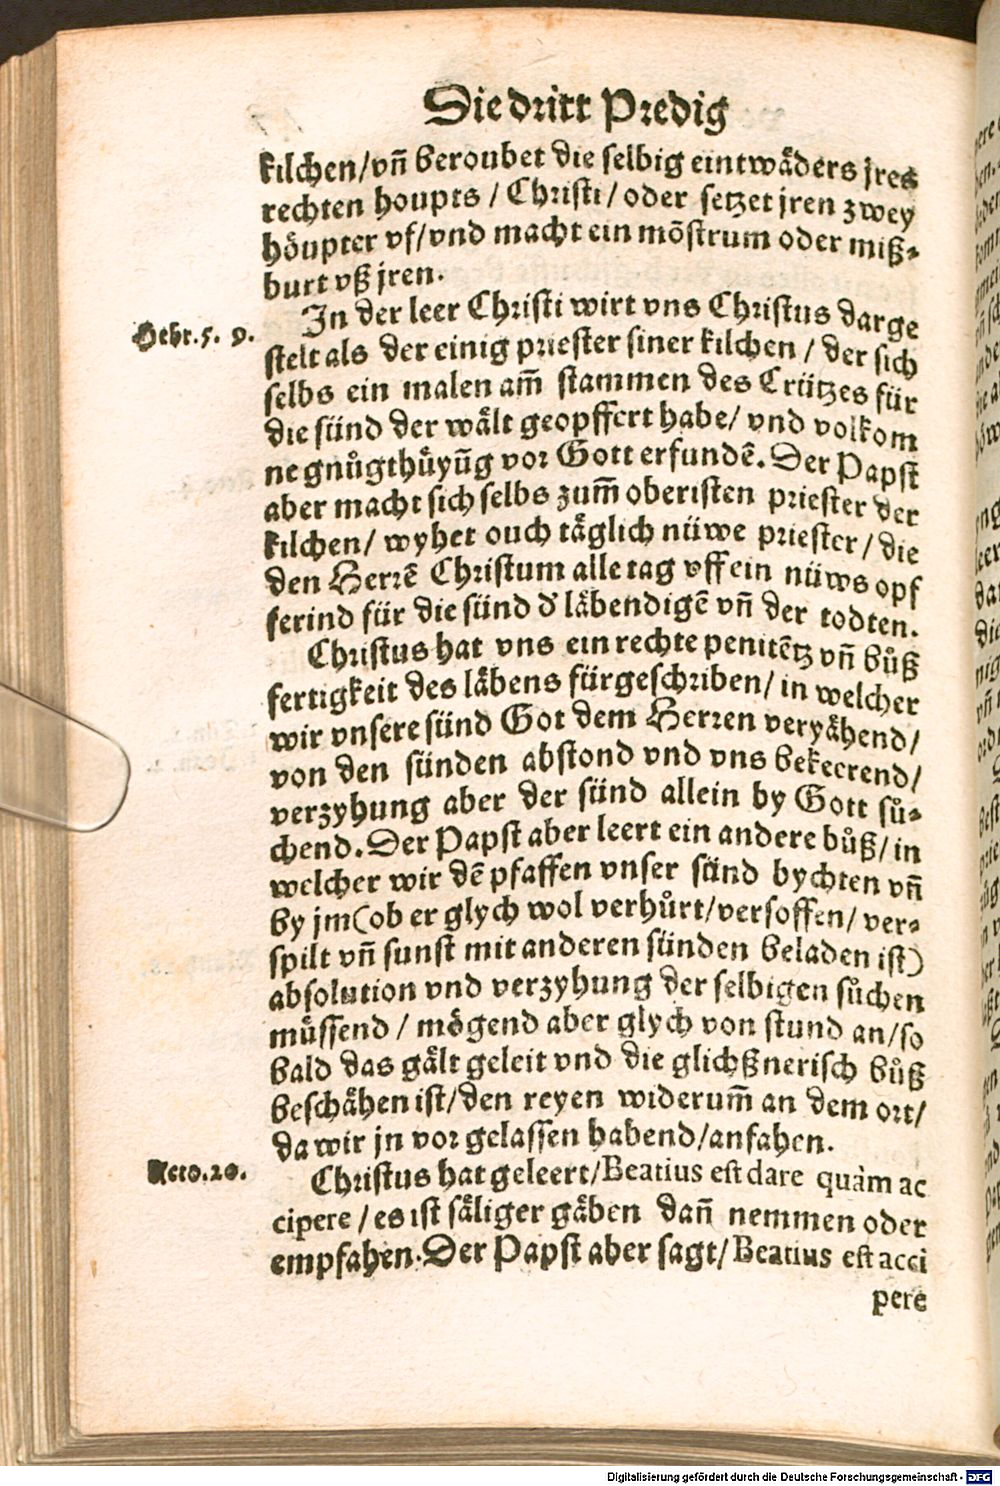 Die dritt Predig
kilchen/vñ beroubet die selbig eintwäders jres
rechten houpts / Christi/ oder setzet jren zwey
höupter vf/vnd macht ein mõstrum oder miß⸗
burt vß jren.
Hebr.5. 9.
In der leer Christi wirt vns Christus darge
stelt als der einig priester siner kilchen / der sich
selbs ein malen am̃ stammen des Crützes für
die sünd der wält geopffert habe/ vnd volkom
ne gnůgthüyũg vor Gott erfundẽ. Der Papst
aber macht sich selbs zum̃ oberisten priester der
kilchen/ wyhet ouch täglich nüwe priester/ die
den Herrẽ Christum alle tag vff ein nüws opf
ferind für die sünd d' läbendigẽ vñ der todten.
Christus hat vns ein rechte penitẽtz vñ bůß
fertigkeit des läbens fürgeschriben/ in welcher
wir vnsere sünd Got dem Herren veryähend/
von den sünden abstond vnd vns bekeerend/
verzyhung aber der sünd allein by Gott sů⸗
chend. Der Papst aber leert ein andere bůß/ in
welcher wir dẽ pfaffen vnser sünd bychten vñ
by jm(ob er glych wol verhůrt/versoffen/ ver⸗
spilt vñ sunst mit anderen sünden beladen ist)
absolution vnd verzyhung der selbigen sůchen
müssend / mögend aber glych von stund an/so
bald das gält geleit vnd die glichßnerisch bůß
beschähen ist/den reyen widerum̃ an dem ort/
da wir jn vor gelassen habend/anfahen.
Acto.20.
Christus hat geleert/Beatius est dare quàm ac
cipere / es ist säliger gäben dañ nemmen oder
empfahen. Der Papst aber sagt/ Beatius est acci
pere
Digitalisierung gefördert durch die Deutsche Forschungsgemeinschaft - DFG